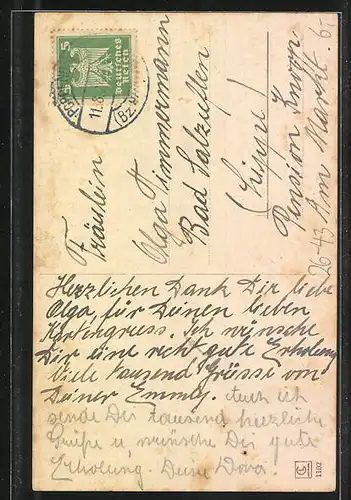 5
Deutsches
Reich
11.8
(Bz.
Fräulein
Olga Timmermann
Bad Salzuflen
(Lippe)
Pension Knorr
Am Markt 6
26-43
Herzlichen Dank Dir liebe
Olga, für Deinen lieben
Kartengruss. Ich wünsche
Dir eine recht gute Erholung
Viele tausend Grüsse von
Deiner Emmy. Auch ich
sende Dir tausend herzliche
Grüße u wünsche Dir gute
Erholung. Deine Dora.
1102